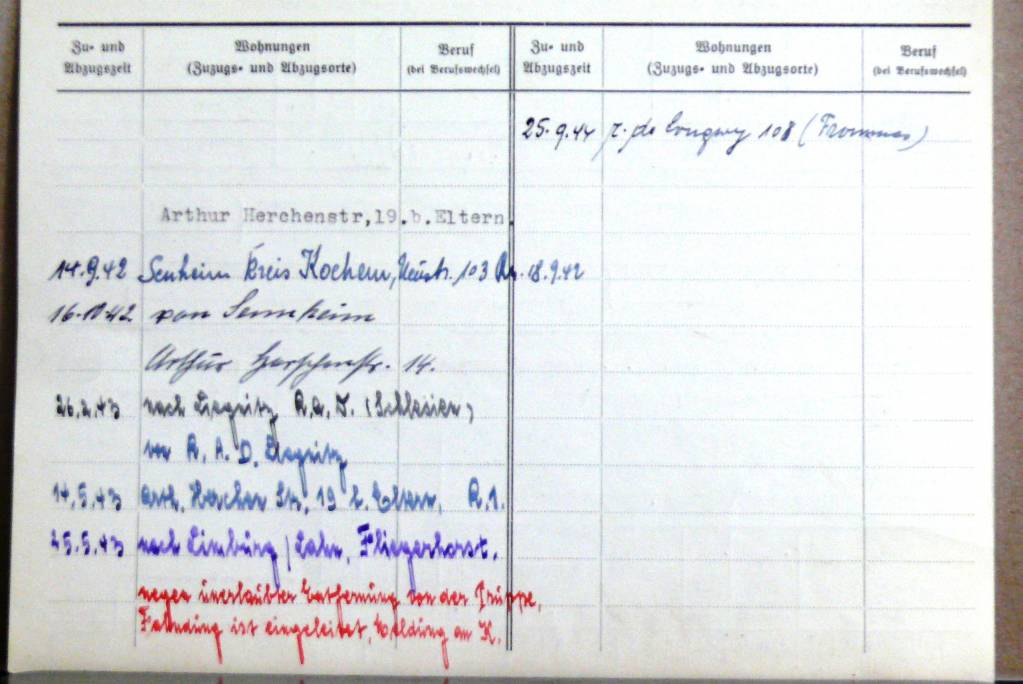 Zu- und Abzugszeit
Wohnungen
(Zuzugs- und Abzugsorte)
Beruf
(bei Berufswechsel)
Zu- und Abzugszeit
Wohnungen
(Zuzugs- und Abzugsorte)
Beruf
(bei Berufswechsel)
Arthur Herchenstr,19.b.Eltern.
14.9.42 Senheim Kreis Kochem, 103 18.9.42
16.10.42 von Sennheim
Arthur Herchenstr. 14.
26.2.43 nach Liegnitz R.A.D. (Schlesien)
von R. A. D. Liegnitz
14.5.43 Arth. Herchen Str. 19 b. Eltern,
25.5.43 nach Limburg/Lahn, Fliegerhorst.
wegen unerlaubter Entfernung von der Truppe,
Fahndung ist eingeleitet, Meldung an K.
25.9.44 r. de Longwy 108